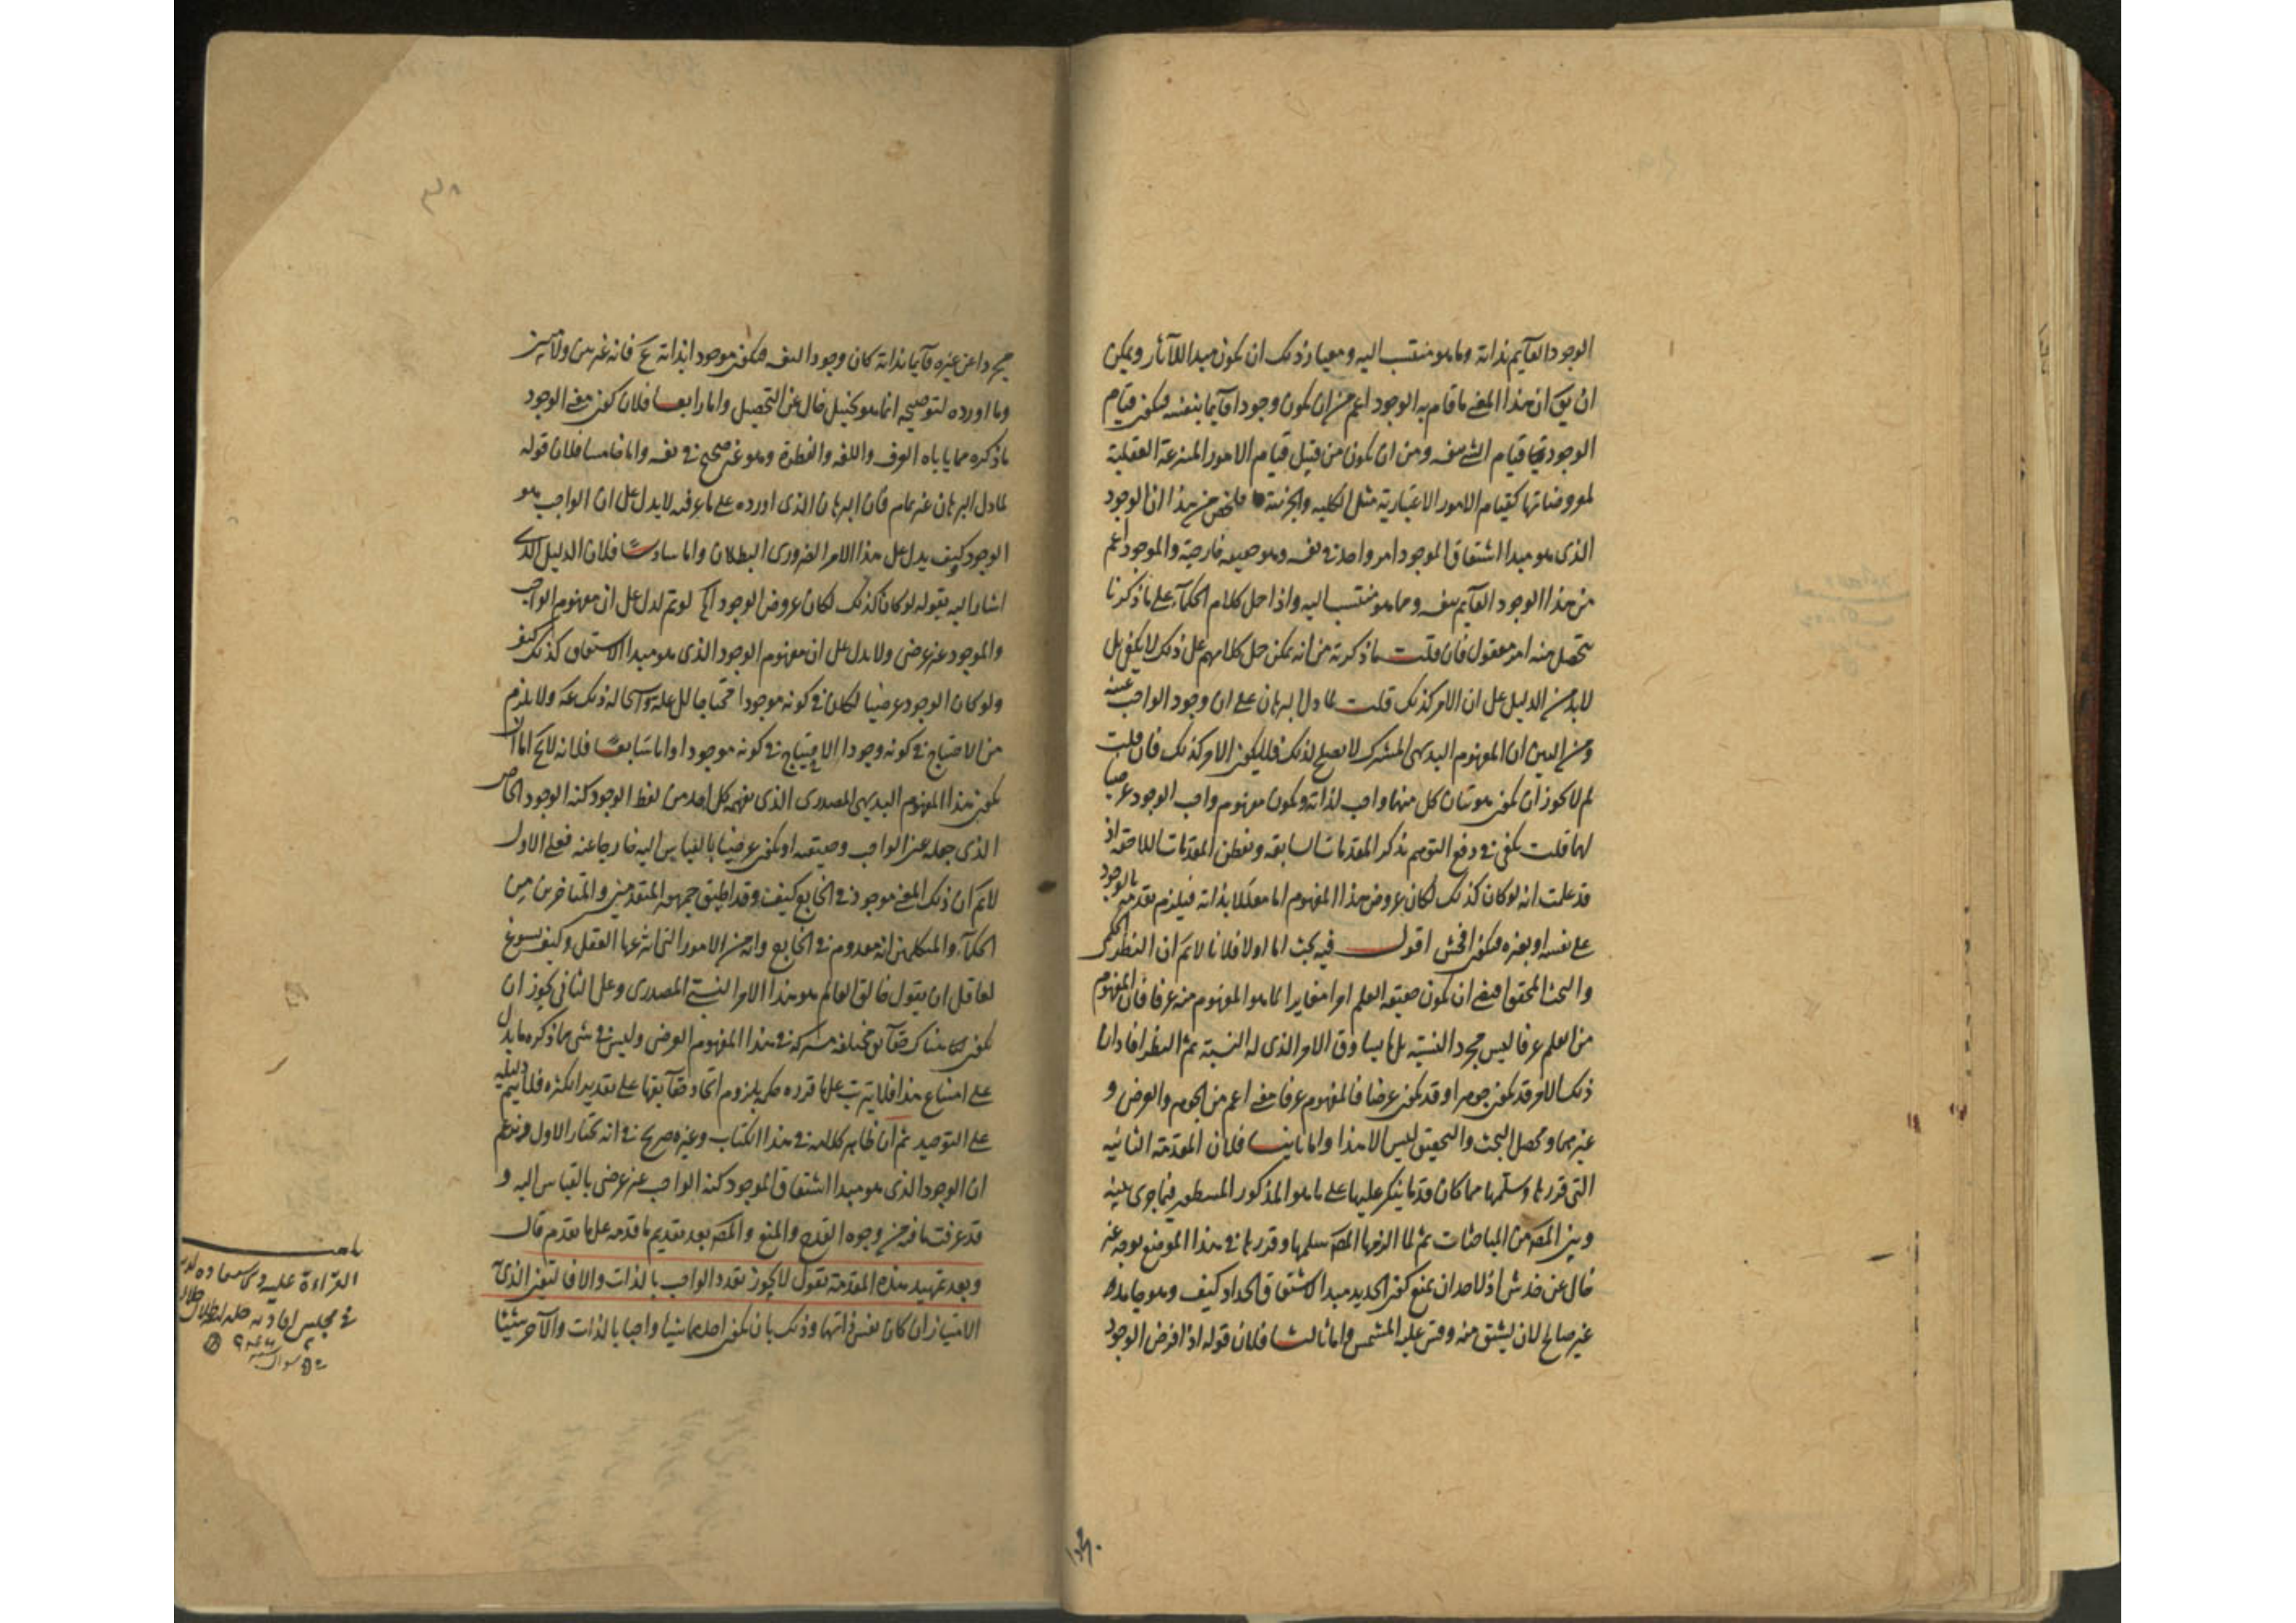 الوجود القآيم بذاته وما هو منتسب اليه ومعيار ذلك ان يكون مبدا للآثار ويمكن
ان يق ان هذا المعنى ما قام به الوجود اعم من ان يكون وجودا قآيما بنفسه فيكون قيام
الوجود به قيام الشئ بنفسه ومن ان يكون من قبيل قيام الامور المنتزعة العقلية
لمعروضاتها كقيام الامور الاعتبارية مثل الكلية والجزئية فلخص من هذا ان الوجود
الذى هو مبدا اشتقاق الموجود امر واحد فى نفسه وهو حقيقة خارجية والموجود اعم
من هذا الوجود القآيم بنفسه ومما هو منتسب اليه واذا حمل كلام الحكمآء على ما ذكرنا
يتحصل منه امر معقول فان قلت ما ذكرته من انه يمكن حمل كلامهم على ذلك لا يكفى بل
لابد من الدليل على ان الامر كذلك قلت لما دل البرهان على ان وجود الواجب عينه
ومن البين ان المفهوم البديهى المشترك لا يصلح لذلك فليكن الامر كذلك فان قلت
لم لا يجوز ان يكون هويتان كل منهما واجب لذاته ويكون مفهوم واجب الوجود عرضيا
لهما قلت يكفى فى دفع التوهم تذكر المقدمات السابقة وتفطن المقدمات اللاحقة اذ
قد علمت انه لو كان كذلك لكان عروض هذا المفهوم اما معللا بذاته فيلزم تقدمه بالوجود
على نفسه او بغيره فيكون افحش اقول فيه بحث اما اولا فلانا لا نم ان النظر الحكمى
والبحث المحقق اقتضى ان يكون حقيقة العلم امرا مغايرا لما هو المفهوم منه عرفا فان المفهوم
من العلم عرفا ليس مجرد النسبة بل ما يساوق الامر الذى له النسبة ثم النظر افاد ان
ذلك الامر قد يكون جوهرا وقد يكون عرضا فالمفهوم عرفا معنى اعم من الجوهر والعرض و
غيرهما ومحصل البحث والتحقيق ليس الا هذا واما ثانيا فلان المقدمة الثانية
التى قررها وسلمها مما كان قدما ينكر عليها على ما هو المذكور المسطور فيما جرى بينه
وبين المص من المباحثات ثم لما الزمها المص سلمها وقررها فى هذا الموضع بوجه غير
خال عن خدش اذ لاحد ان يمنع كون الحديد مبدا لاشتقاق الحداد كيف وهو جامد
غير صالح لان يشتق منه وقس عليه المشمس واما ثالثا فلان قوله اذا فرض الوجود
مجردا عن غيره قآيما بذاته كان وجودا لنفسه فيكون موجودا بذاته مم فانه غير بين ولا مبين
وما اورده لتوضيحه انما هو تخييل خال عن التحصيل واما رابعا فلان كون معنى الوجود
ما ذكره مما ياباه العرف واللغة والفطرة وهو غير صحيح فى نفسه واما خامسا فلان قوله
لما دل البرهان غير تمام فان البرهان الذى اورده على ما عرفته لا يدل على ان الواجب هو
الوجود كيف يدل على هذا الامر الضرورى البطلان واما سادسا فلان الدليل الذى
اشار اليه بقوله لو كان كذلك لكان عروض الوجود الخ لو تم لدل على ان مفهوم الواجب
والموجود غير عرضى ولا يدل على ان مفهوم الوجود الذى هو مبدا الاشتقاق كذلك كيف
ولو كان الوجود عرضيا لكان فى كونه موجودا محتاجا الى علة واستحالة ذلك مم ولا يلزم
من الاحتياج فى كونه وجودا الاحتياج فى كونه موجودا واما سابعا فلانه لا يخ اما ان
يكون هذا المفهوم البديهى المصدرى الذى يفهمه كل احد من لفظ الوجود كنه الوجود الخاص
الذى جعله عين الواجب وحقيقته او يكون عرضيا بالقياس اليه خارجا عنه فعلى الاول
لا نم ان ذلك المعنى موجود فى الخارج كيف وقد اطبق جمهور المتقدمين والمتاخرين من
الحكمآء والمتكلمين انه معدوم فى الخارج وانه من الامور التى انتزعها العقل وكيف يسوغ
لعاقل ان يقول خالق العالم هو هذا الامر النسبى المصدرى وعلى الثانى يجوز ان
يكون هناك حقآيق مختلفة مشتركة فى هذا المفهوم العرضى وليس فى شئ مما ذكره ما يدل
على امتناع هذا فلا يترتب على ما قرره حكمه بلزوم اتحاد حقآيقها على تقدير الكثرة فلا يتم دليله
على التوحيد ثم ان ظاهر كلامه فى هذا الكتاب وغيره صريح فى انه يختار الاول فزعم
ان الوجود الذى هو مبدا اشتقاق الموجود كنه الواجب غير عرضى بالقياس اليه و
قد عرفت ما فيه من وجوه القدح والمنع والمص بعد تقديم ما قدمه على ما تقدم قال
وبعد تمهيد هذه المقدمة نقول لا يجوز تعدد الواجب بالذات والا فالتعين الذى به
الامتياز ان كان نفس ذاتهما وذلك بان يكون احدهما شيئا واجبا بالذات والآخر شيئا
القراءة عليه
فى مجلس